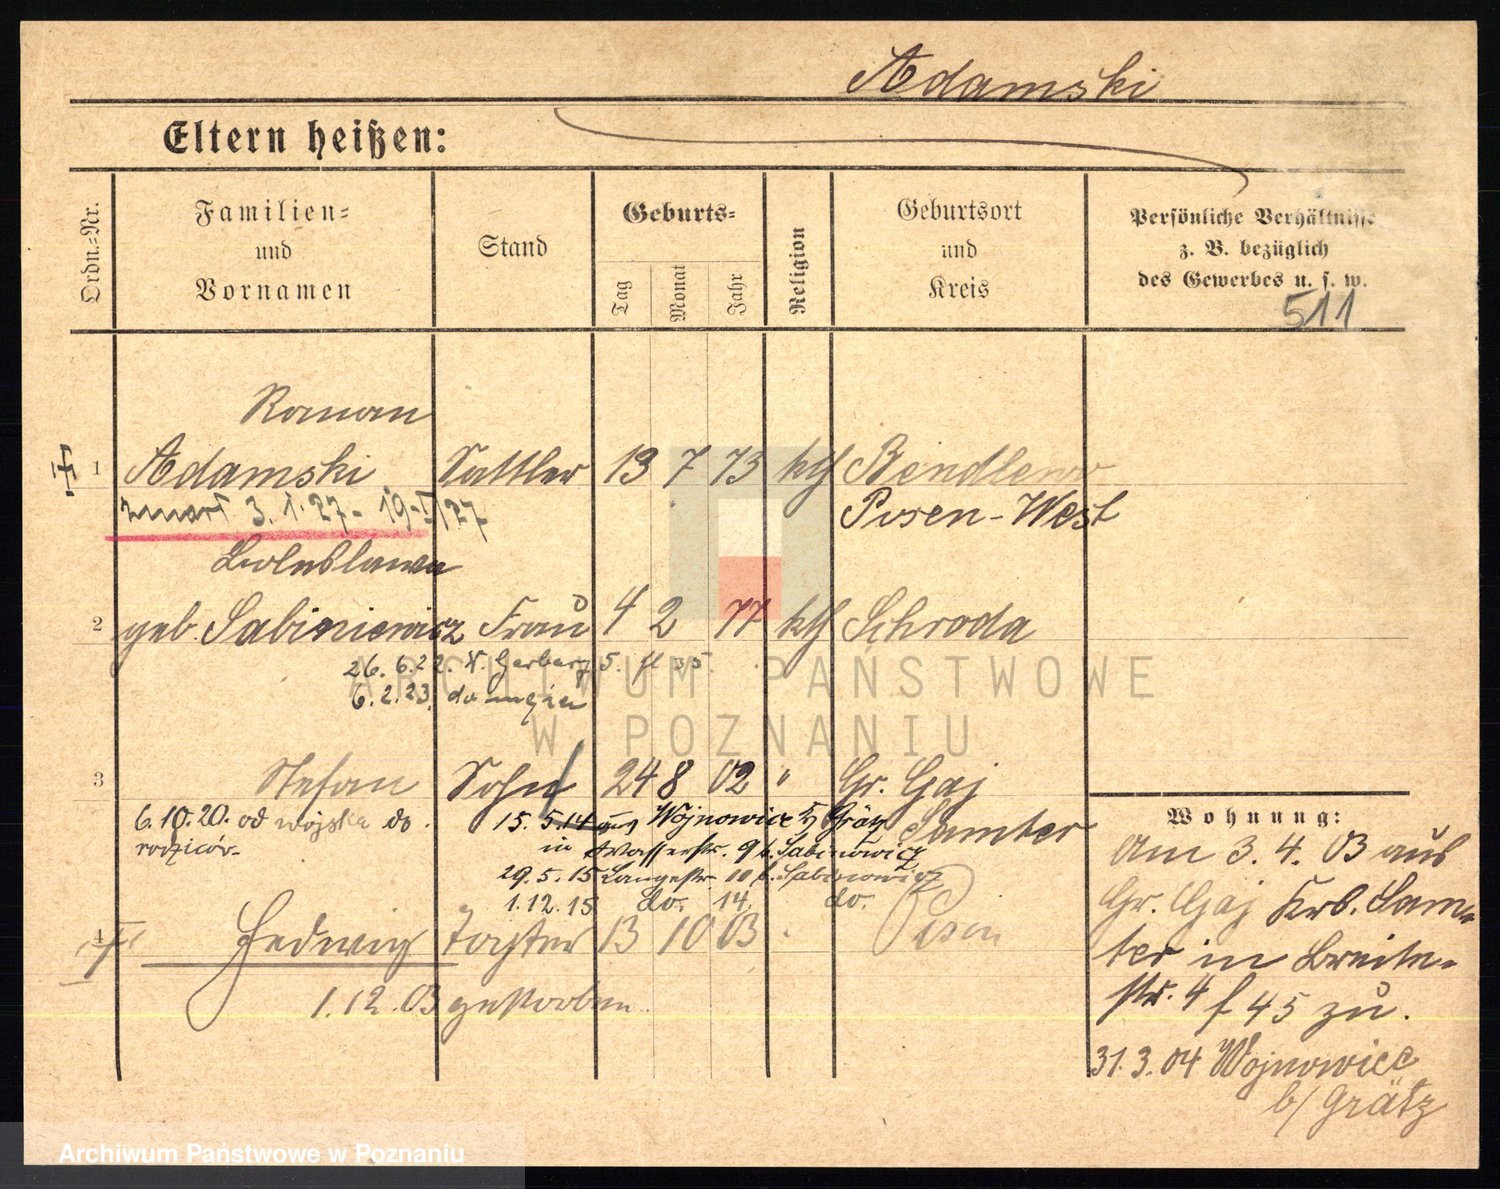 Adamski
Eltern heißen:
Ordn.=Nr.
Familien=
und
Vornamen
Stand
Geburts=
Tag
Monat
Jahr
Religion
Geburtsort
und
Kreis
Persönliche Verhältnisse
z. B. bezüglich
des Gewerbes u. s. w.
511
Roman
1 Adamski Sattler 13 7 73 kth Bendlewo
zmarł 3.1.27 - 19-I/27
Posen-West
Boleslawa
2 geb Sabiniewicz Frau 4 2 77 kth Schroda
26.6.22. X. Garbary 5. fl 35.
6.2.23. do męża
3 Stefan Sohn 24 8 02 " Gr. Gaj
Samter
6.10.20. od wojska do
rodziców.
15.5.14 aus Wojnowice b/ Grätz
in Wasserstr. 9 b. Sabinowicz
29.5.15 Langestr. 10 b. Sabinowicz
1.12.15 do. 14. do.
4 Hedwig Tochter 13 10 03 Posen
1.12.03 gestorben.
Wohnung:
Am 3.4.03 aus
Gr. Gaj Krb. Sam-
ter in Breite-
str. 4 f 45 zu.
31.3.04 Wojnowice
b/ Grätz
ARCHIWUM PAŃSTWOWE
W POZNANIU
Archiwum Państwowe w Poznaniu